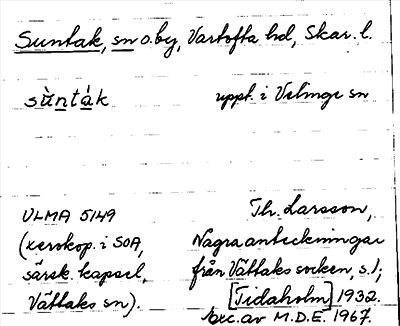 Suntak, sn o. by, Vartofta hd, Skar. l.
sùnták uppt. i Velinge sn
ULMA 5149 Th. Larsson,
(xerokop. i SOA, Några anteckningar
särsk. kapsel, från Vättaks socken, s. 1,
Vättaks sn). [Tidaholm] 1932.
exc. av M.D.E. 1967.